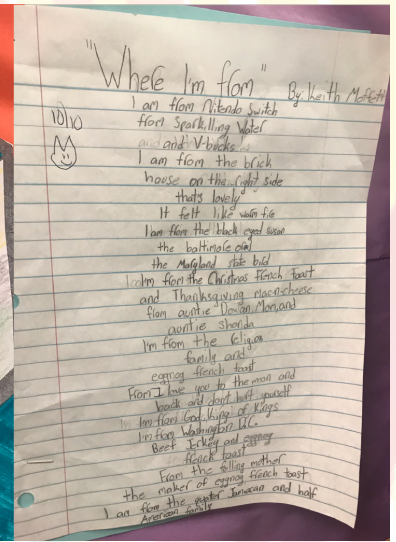 "Where I'm from" By: Keith Moffett
10/10
I am from Nitendo Switch
from Sparkilling Water
and and V-bucks
I am from the brick
house on the right side
thats lovely
It felt like warm fire
I am from the black eyed susan
the baltimore oral
the Maryland state bird
I am from the Christmas french toast
and Thanksgiving mac-n-cheese
from auntie Mom, and
auntie shanda
I'm from the religion
family and
eggnog french toast
From I love you to the moon and
back and don't hurt yourself
I'm from God, King of Kings
I'm from Washington D.C.
Beef Jerkey and eggnog
french toast
From the mother
the maker of eggnog french toast
I am from the Jamaican and half
American family